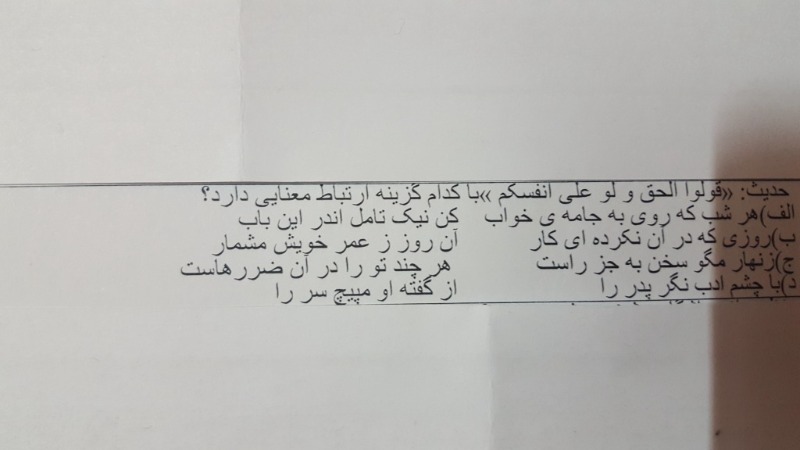 حدیث: «قولوا الحق و لو علی انفسکم »با کدام گزینه ارتباط معنایی دارد؟
الف)هر شب که روی به جامه ی خواب کن نیک تامل اندر این باب
ب)روزی که در آن نکرده ای کار آن روز ز عمر خویش مشمار
ج)زنهار مگو سخن به جز راست هر چند تو را در آن ضررهاست
د)با چشم ادب نگر پدر را از گفته او مپیچ سر را